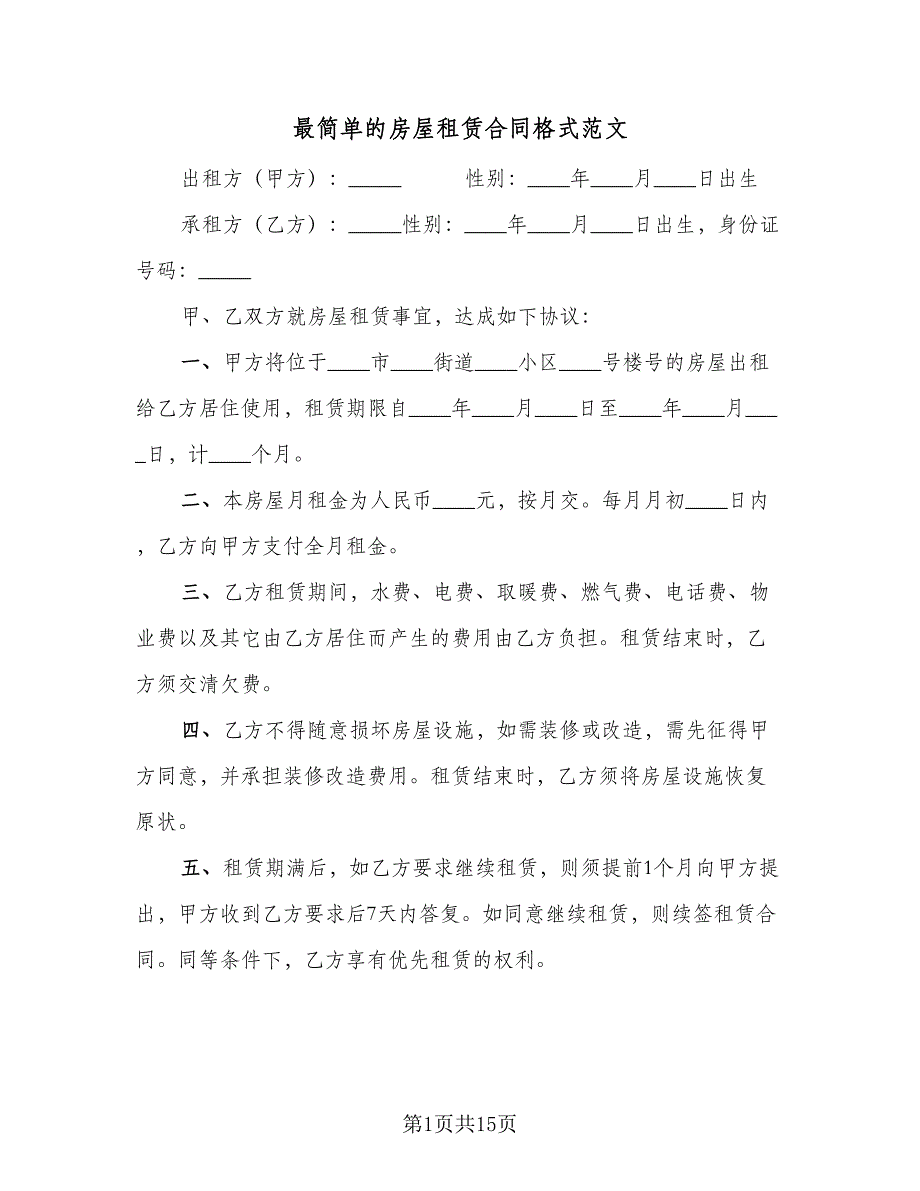 最简单的房屋租赁合同格式范文
出租方（甲方）：_____ 性别：____年____月____日出生
承租方（乙方）：_____性别：____年____月____日出生，身份证
号码：_____
甲、乙双方就房屋租赁事宜，达成如下协议：
一、甲方将位于____市____街道____小区____号楼号的房屋出租
给乙方居住使用，租赁期限自____年____月____日至____年____月___
_日，计____个月。
二、本房屋月租金为人民币____元，按月交。每月月初____日内
，乙方向甲方支付全月租金。
三、乙方租赁期间，水费、电费、取暖费、燃气费、电话费、物
业费以及其它由乙方居住而产生的费用由乙方负担。租赁结束时，乙
方须交清欠费。
四、乙方不得随意损坏房屋设施，如需装修或改造，需先征得甲
方同意，并承担装修改造费用。租赁结束时，乙方须将房屋设施恢复
原状。
五、租赁期满后，如乙方要求继续租赁，则须提前1个月向甲方提
出，甲方收到乙方要求后7天内答复。如同意继续租赁，则续签租赁合
同。同等条件下，乙方享有优先租赁的权利。
第1页共15页